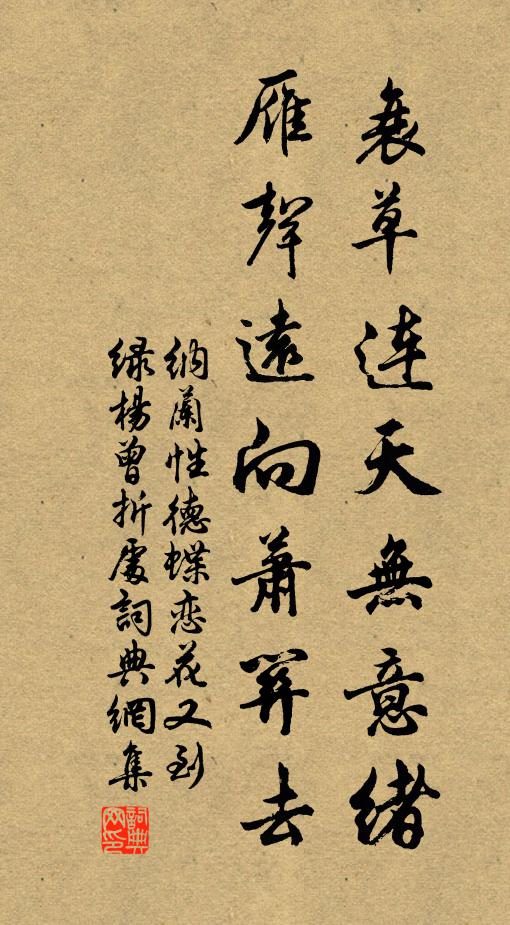 衰草連天無意緒
雁聲遠向蕭關去
納蘭性德蝶恋花又到
緑楊曾折處詞典網集
詞典网印